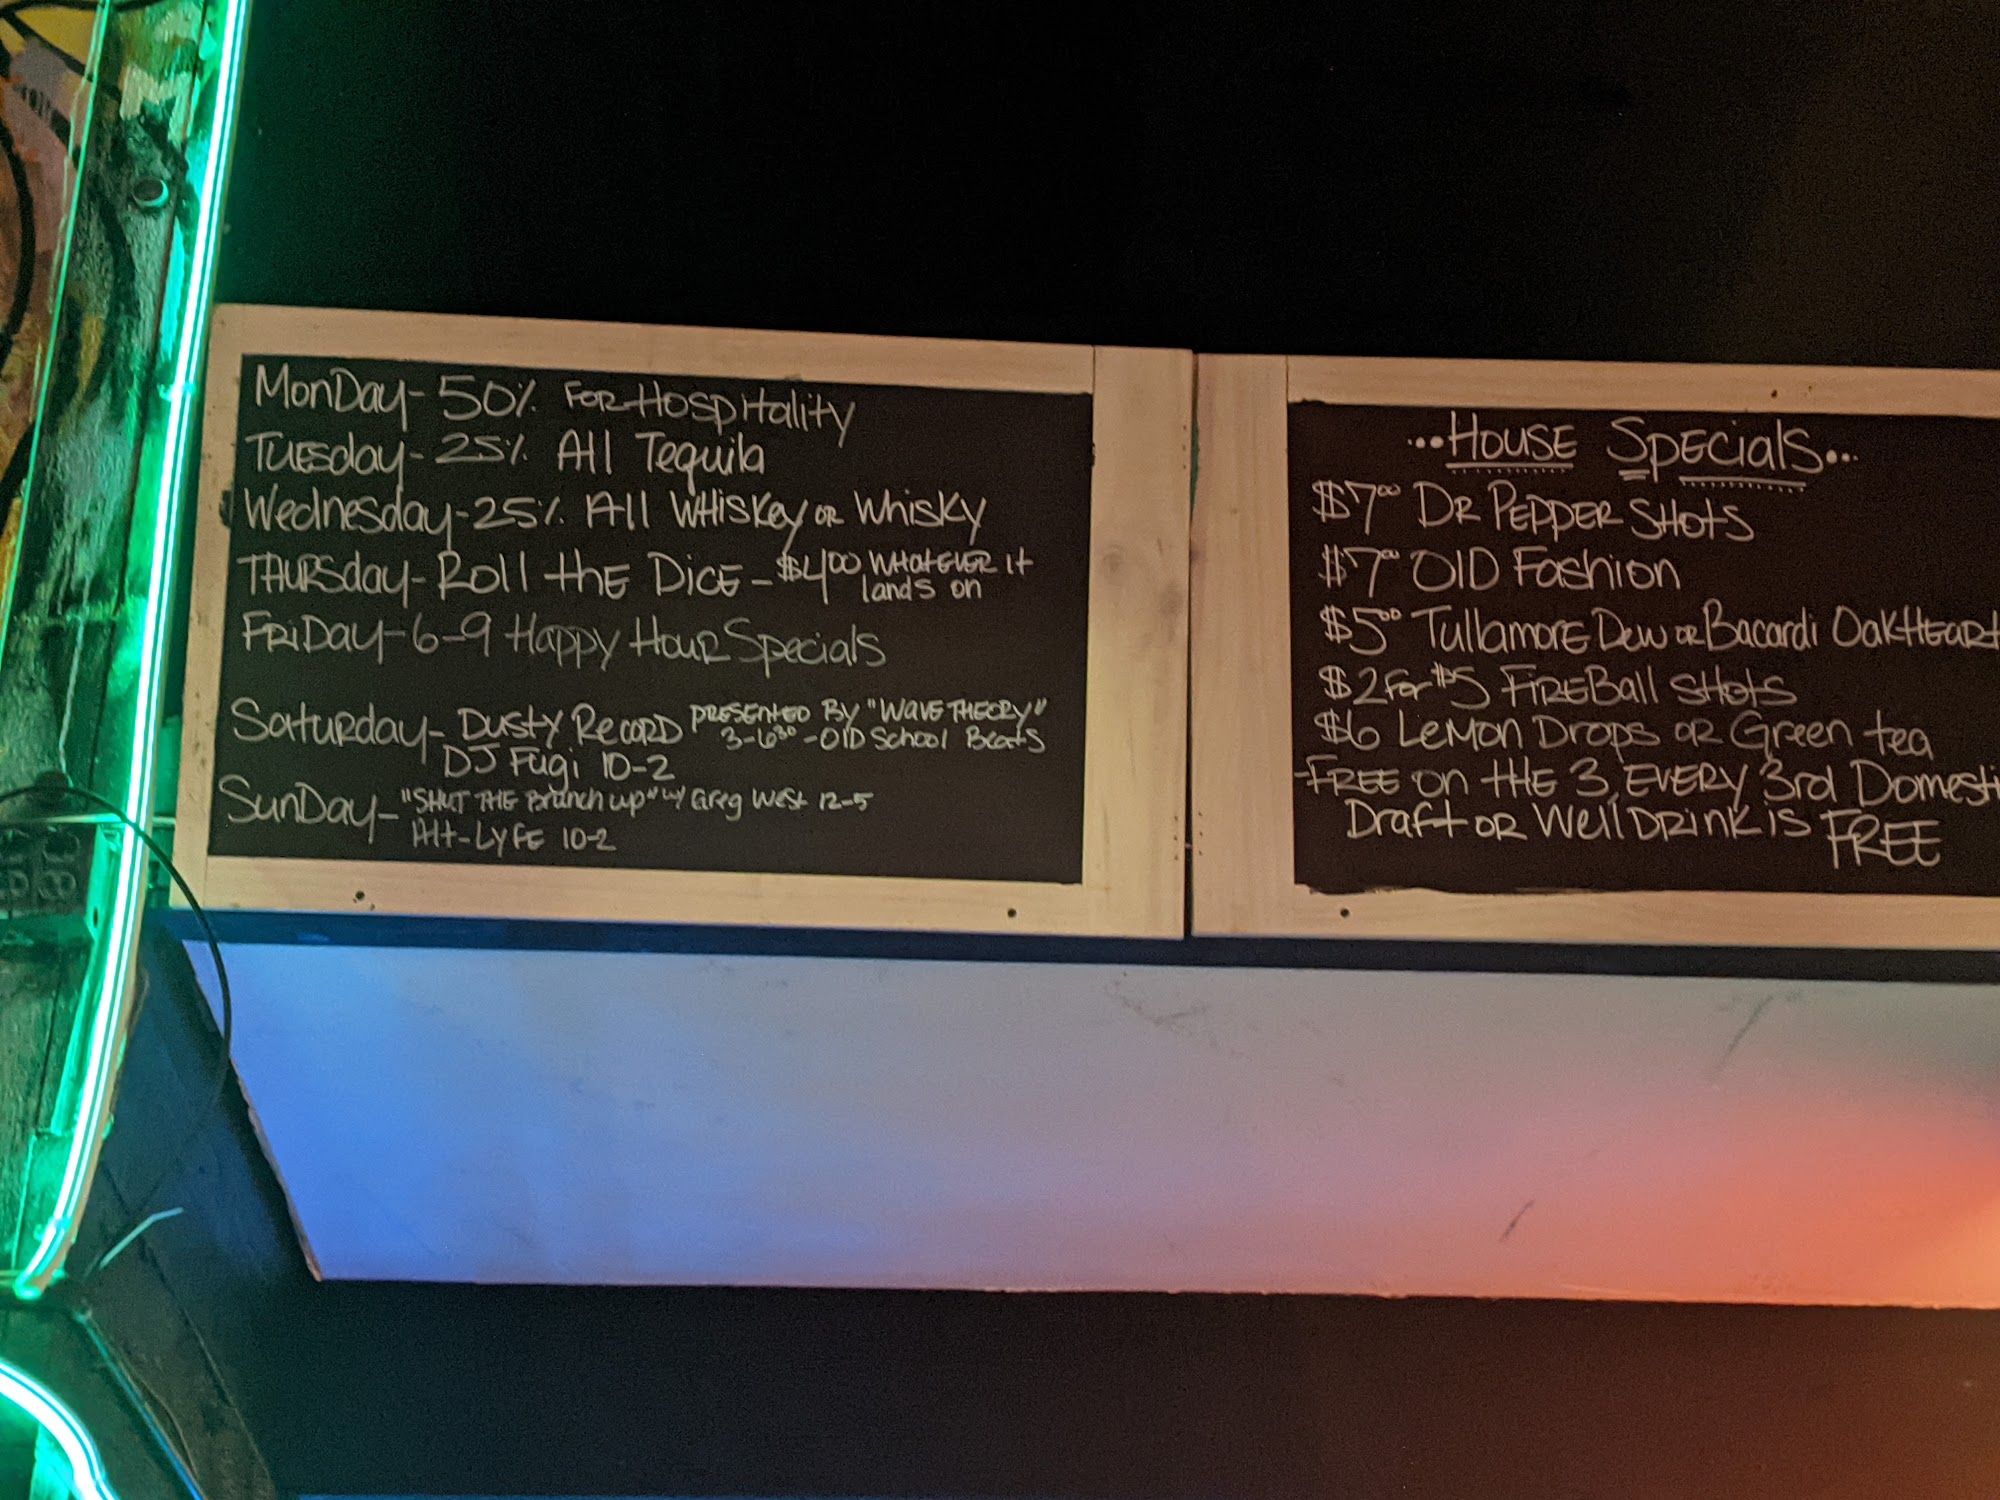 MonDay- 50% For Hospitality
Tuesday- 25% All Tequila
Wednesday-25% All WHiskey or Whisky
THURSday- Roll the Dice - $4.00 WHatEVER it
lands on
FRiDay- 6-9 Happy Hour Specials
Saturday- Dusty Record PRESENTED By "WAVE THEORY"
3-6:30 - Old School Beats
DJ Fugi 10-2
SunDay- "SHUT THE Brunch up" w/ Greg West 12-5
Alt-Lyfe 10-2
...House Specials...
$7.00 Dr Pepper SHots
$7.00 Old Fashion
$5.00 Tullamore Dew or Bacardi OakHeart
$2 For $5 FireBall SHots
$6 Lemon Drops or Green tea
-FREE on the 3, EVERY 3rd Domesti
Draft or Well Drink is FREE